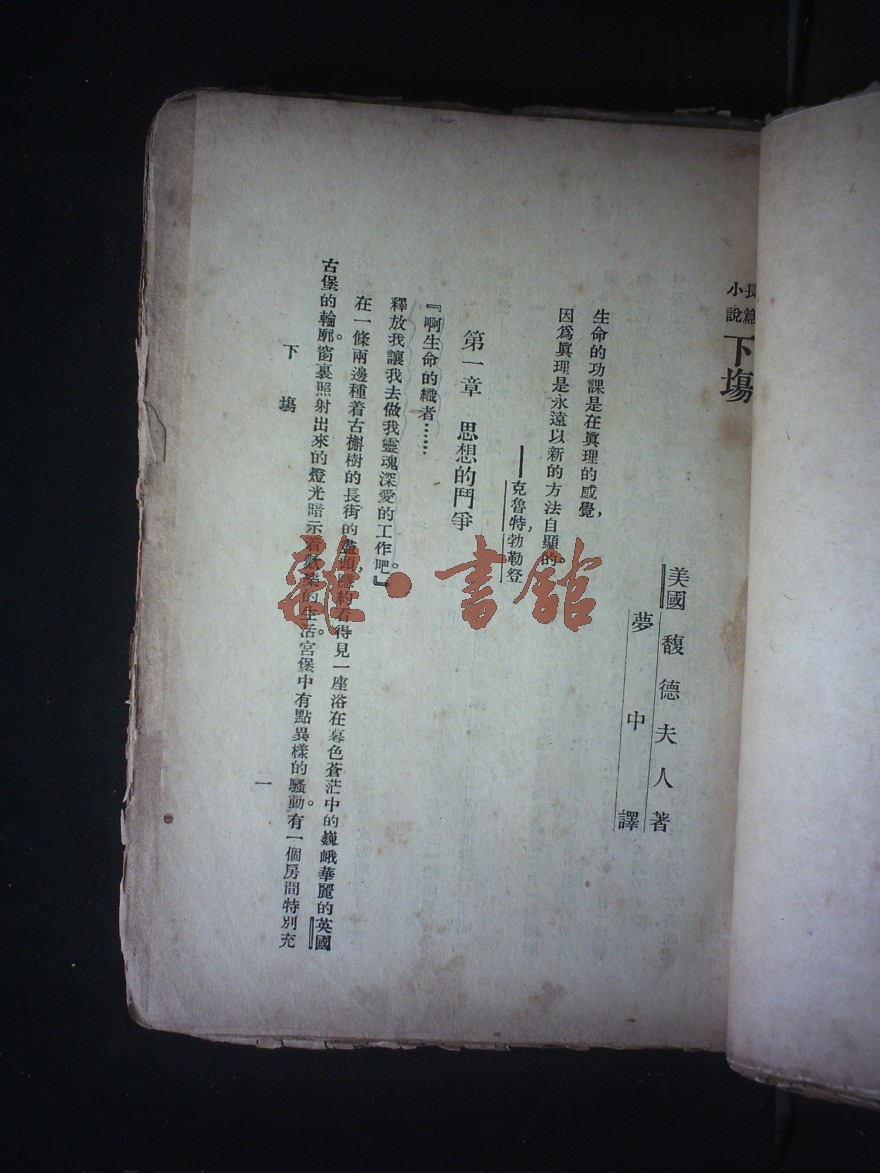 長篇小說
下塲
美國馥德夫人著
夢中譯
生命的功課是在眞理的感覺，
因爲眞理是永遠以新的方法自顯的。
——克魯特勃勒登
第一章　思想的鬥爭
『啊生命的織者……
釋放我讓我去做我靈魂深愛的工作吧。』
在一條兩邊種着古槲樹的長街的盡頭，隱約看得見一座浴在暮色蒼茫中的巍峨華麗的英國
古堡的輪廓。窗裏照射出來的燈光暗示着歡樂的生活。宮堡中有點異樣的騷動。有一個房間特別充
下塲
一
雜·書館